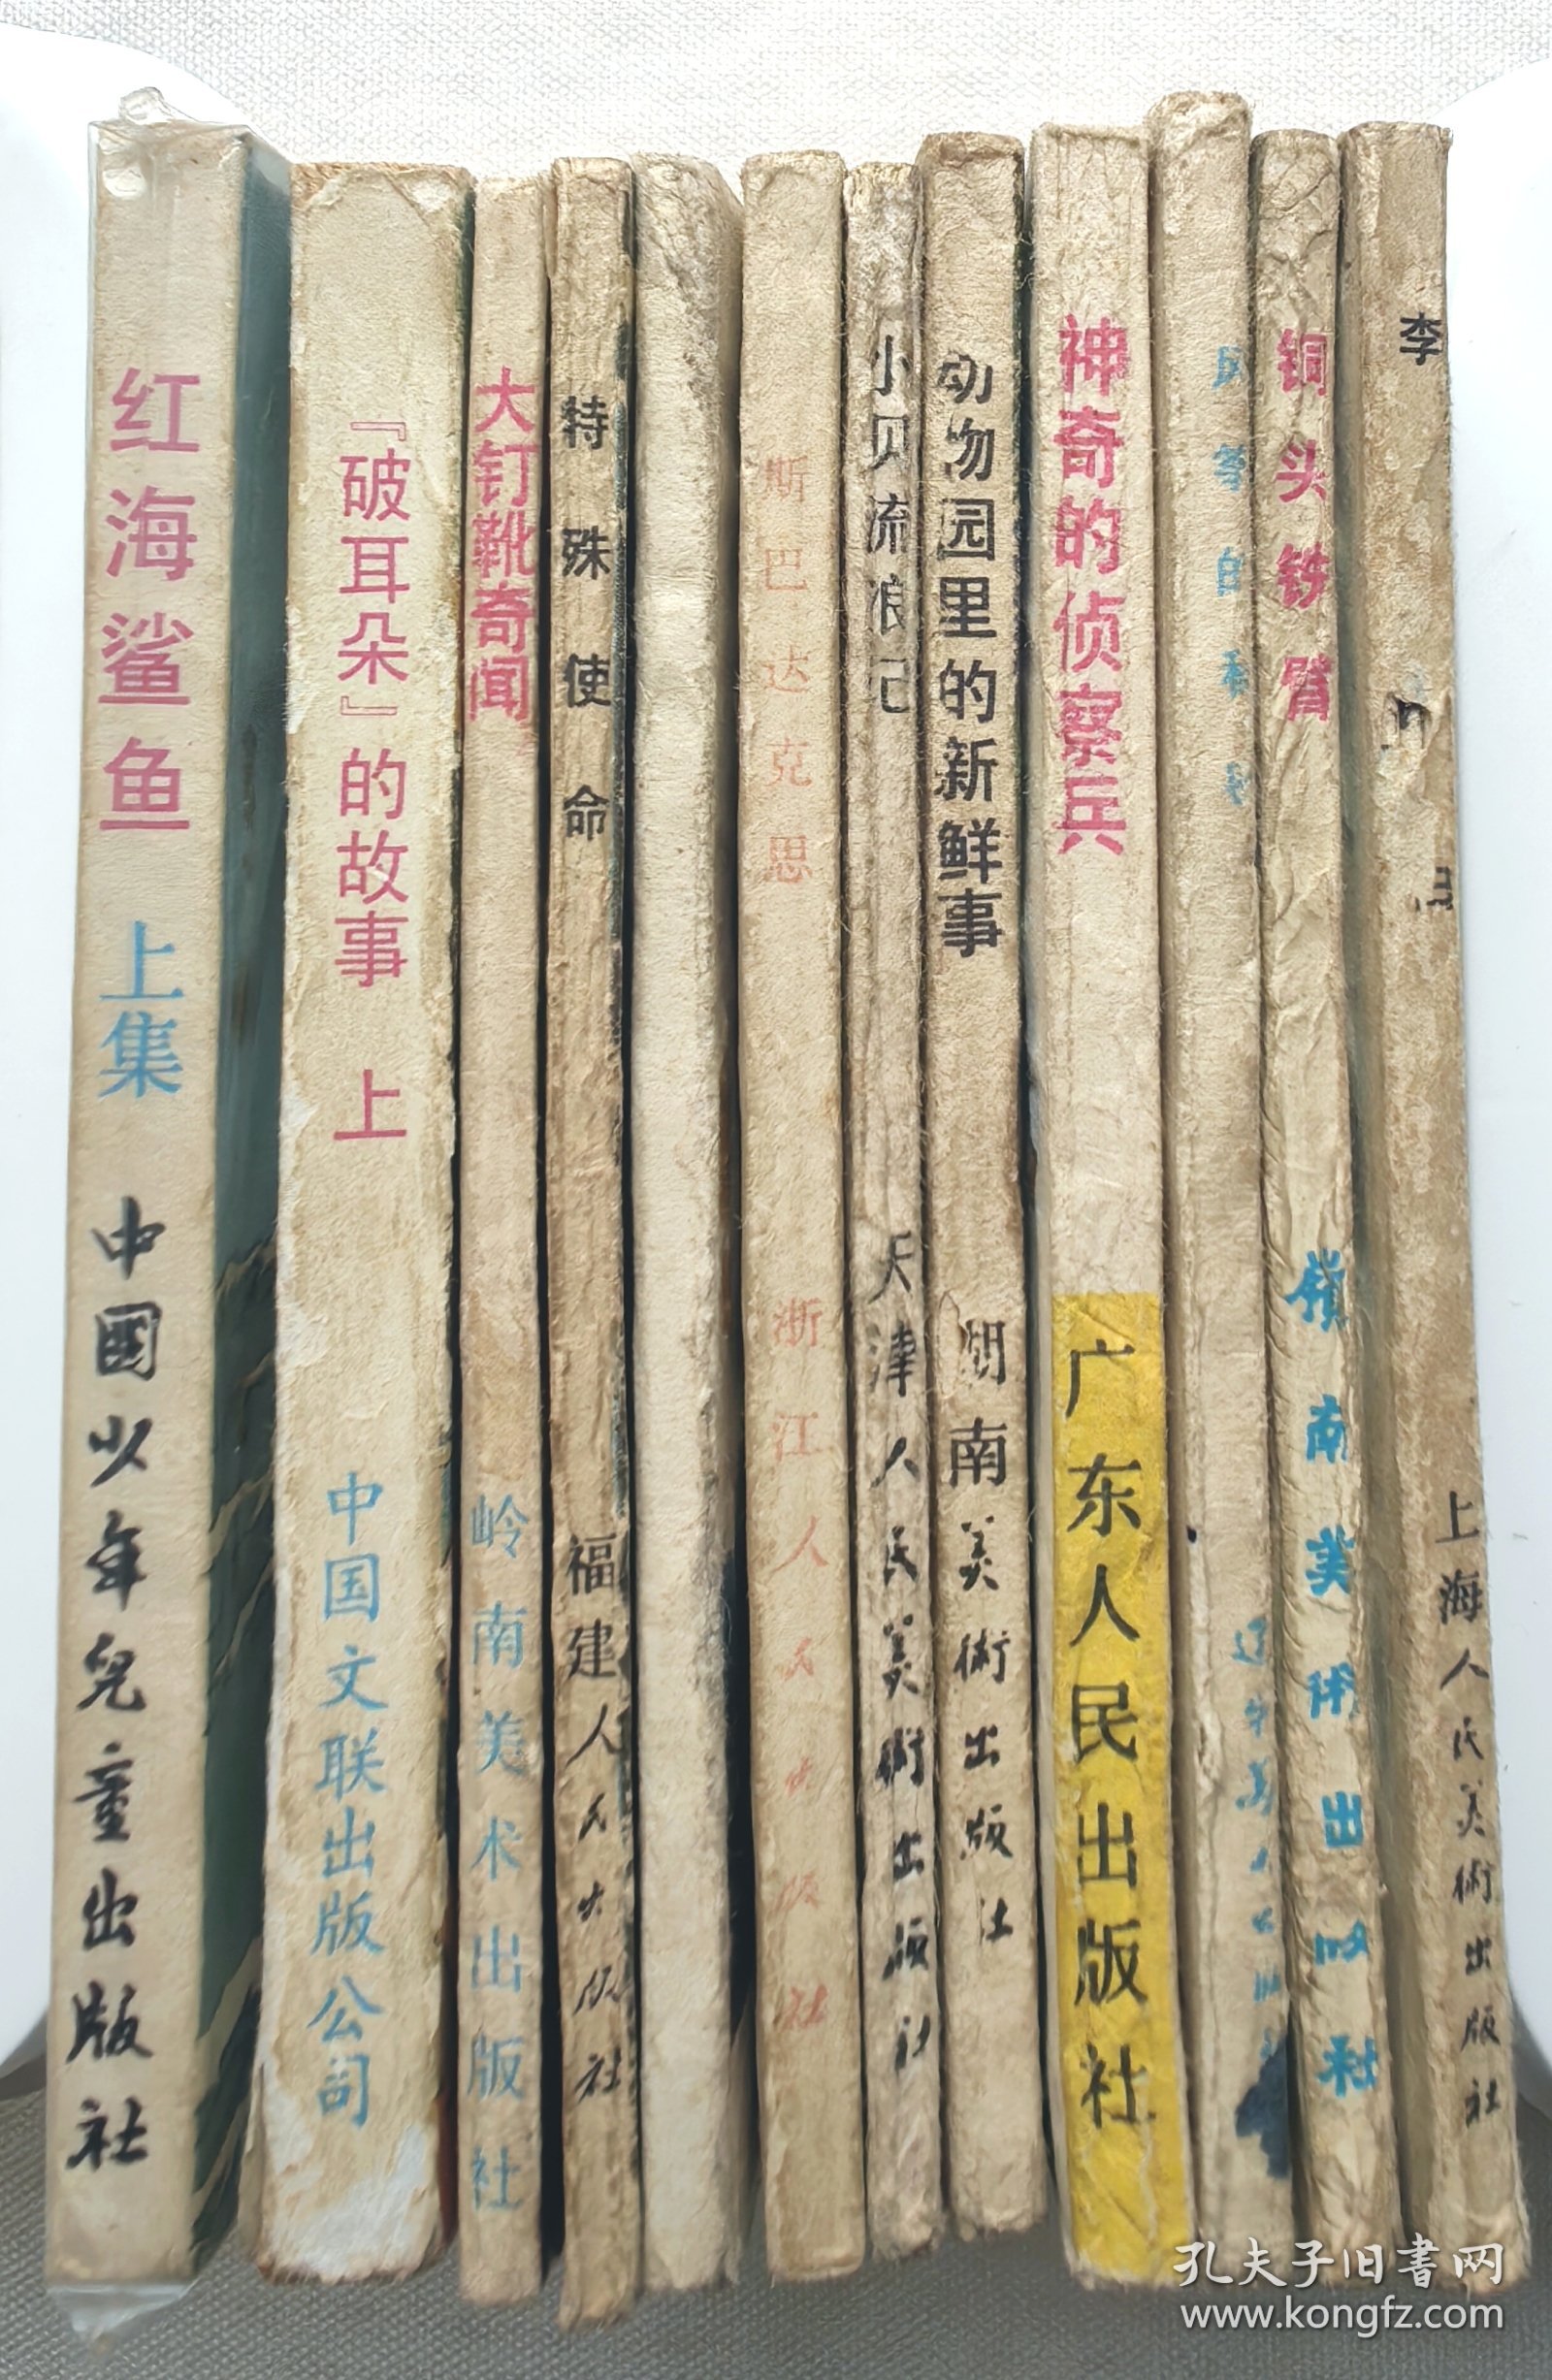 红海鲨鱼 上集 中國少年兒童出版社
『破耳朵』的故事 上 中国文联出版公司
大钉靴奇闻 岭南美术出版社
特殊使命 福建人民出版社
斯巴达克思 浙江人民出版社
小贝流浪记 天津人民美術出版社
动物园里的新鲜事 湖南美術出版社
神奇的侦察兵 广东人民出版社
铜头铁臂 嶺南美術出版社
李 上海人民美術出版社
孔夫子旧書网
www.kongfz.com